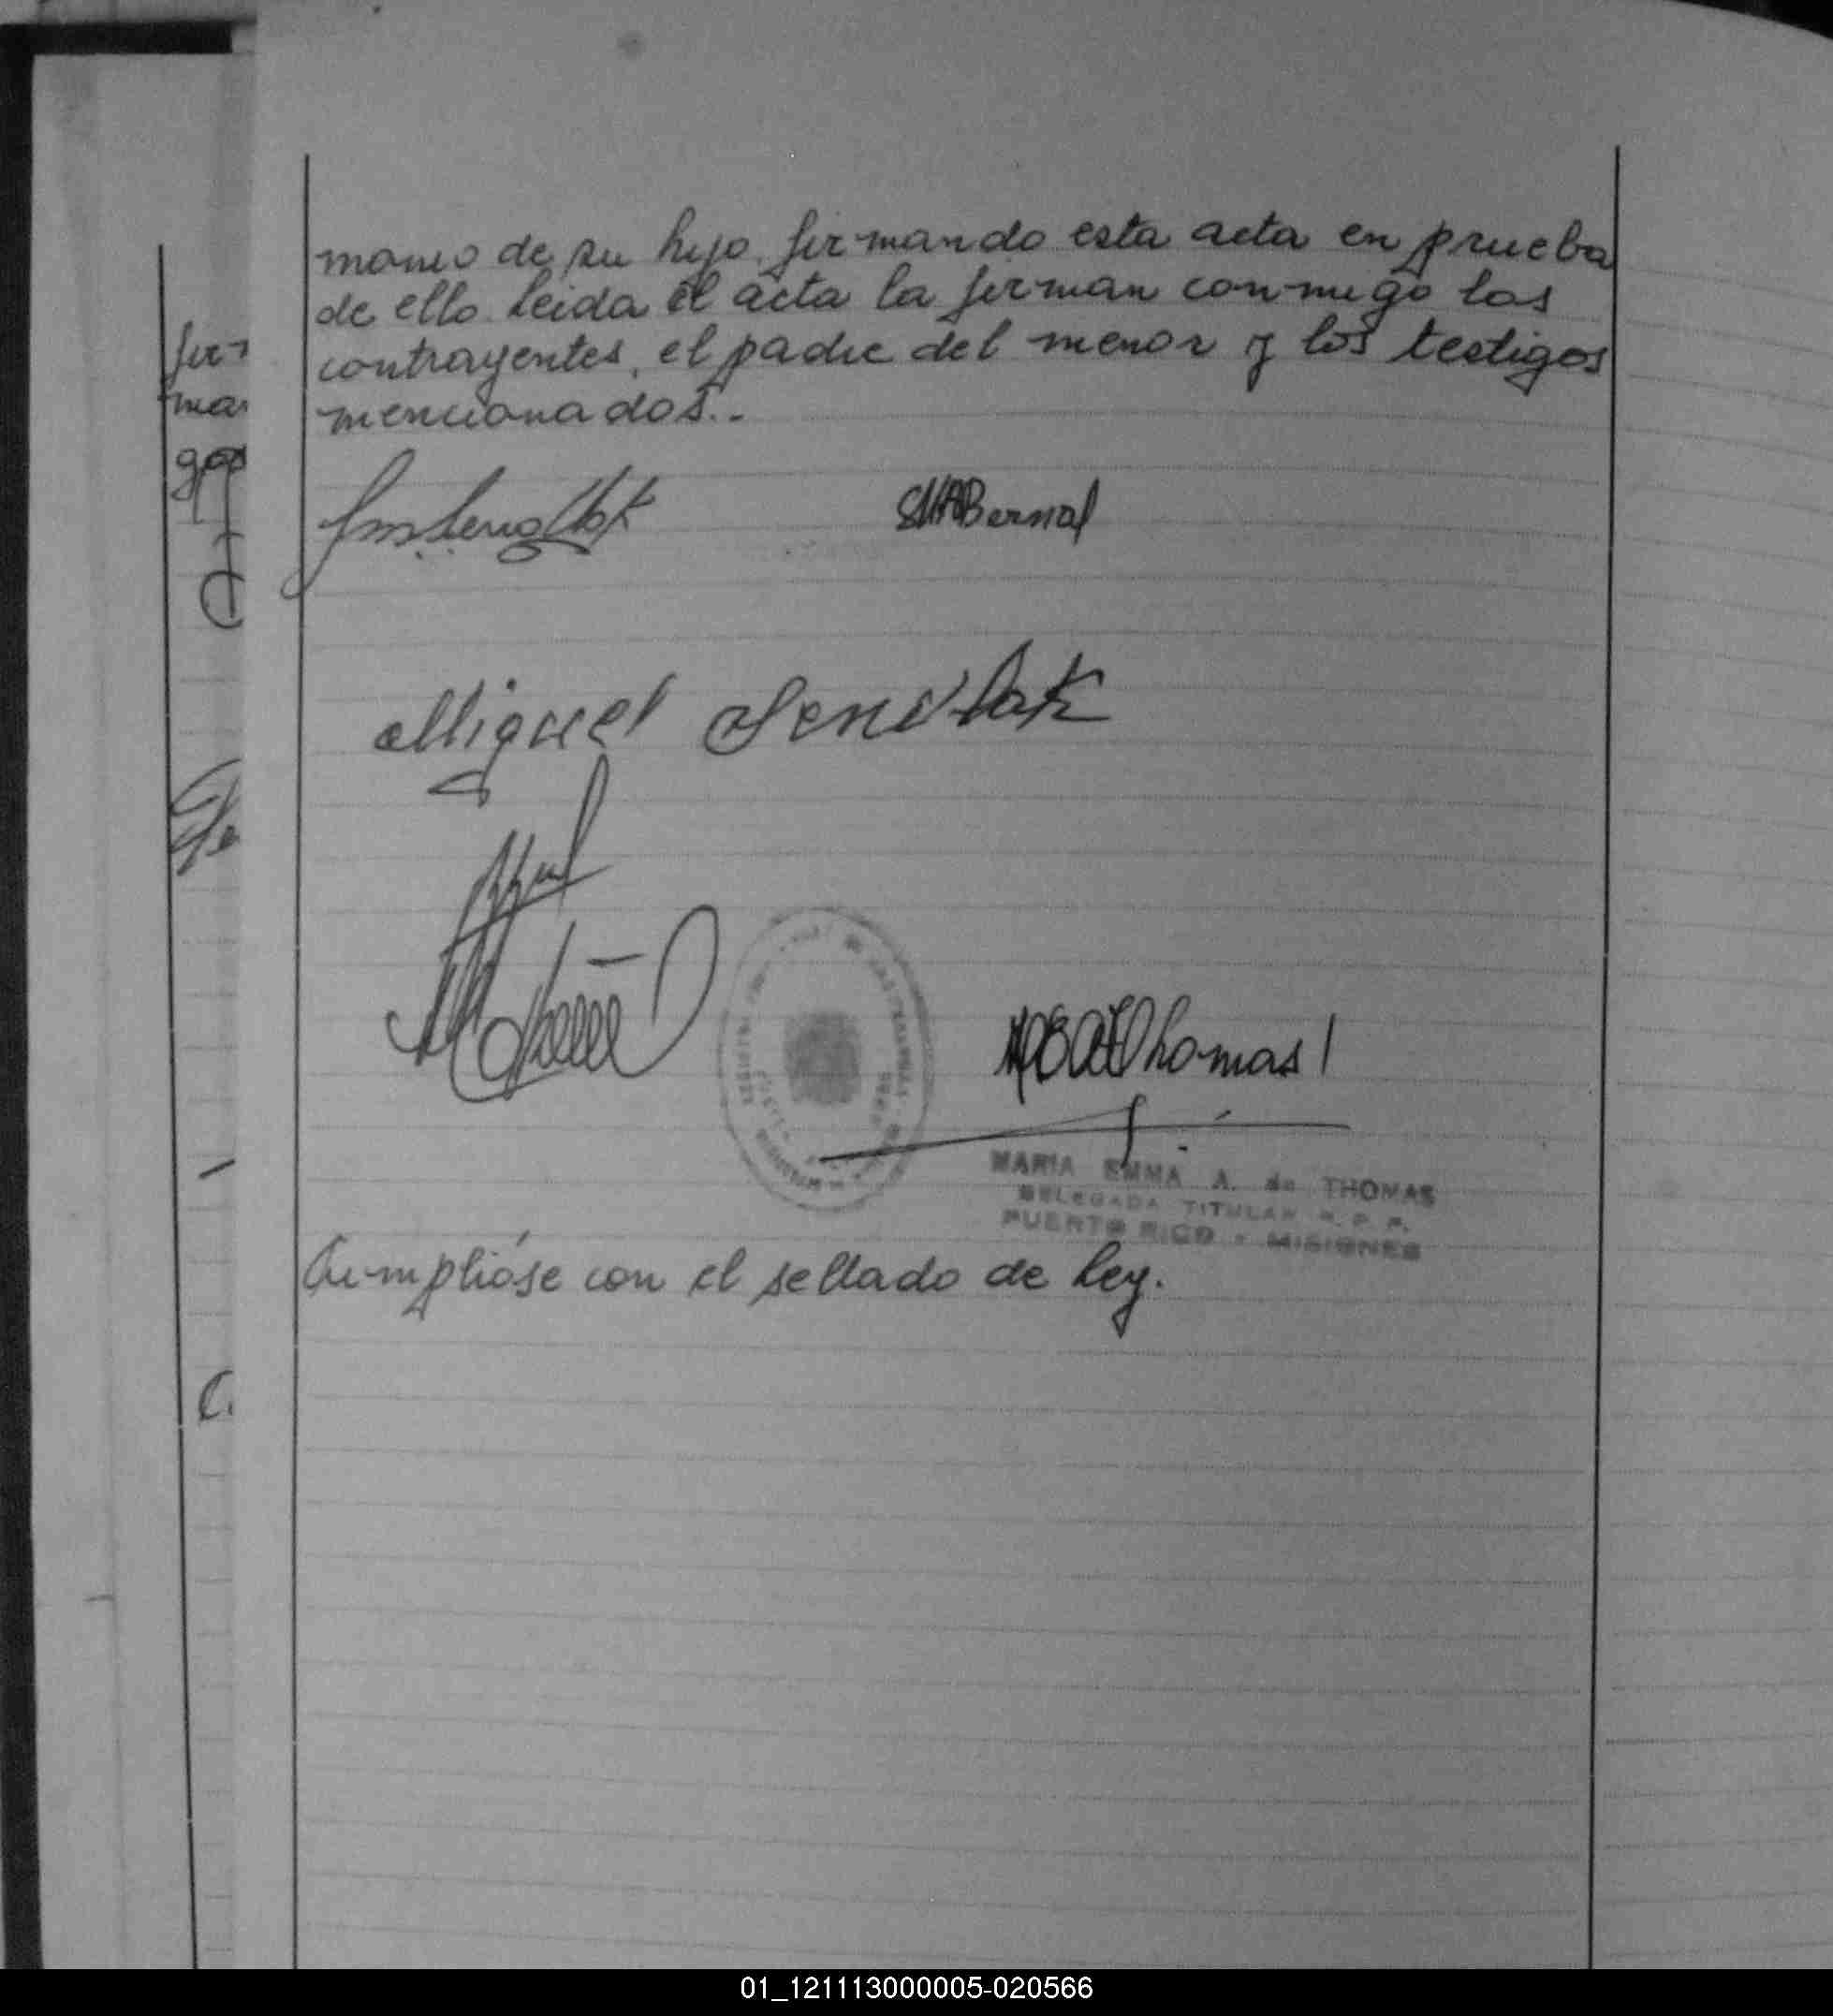 monio de su hijo, firmando esta acta en prueba
de ello. Leida el acta la firman conmigo los
contrayentes, el padre del menor y los testigos
mencionados.-
SMABernal
Miguel
Thomas
MARIA EMMA A. de THOMAS
DELEGADA TITULAR R. P. P.
PUERTO RICO - MISIONES
Cumplióse con el sellado de Ley.
fir
ma
01_121113000005-020566